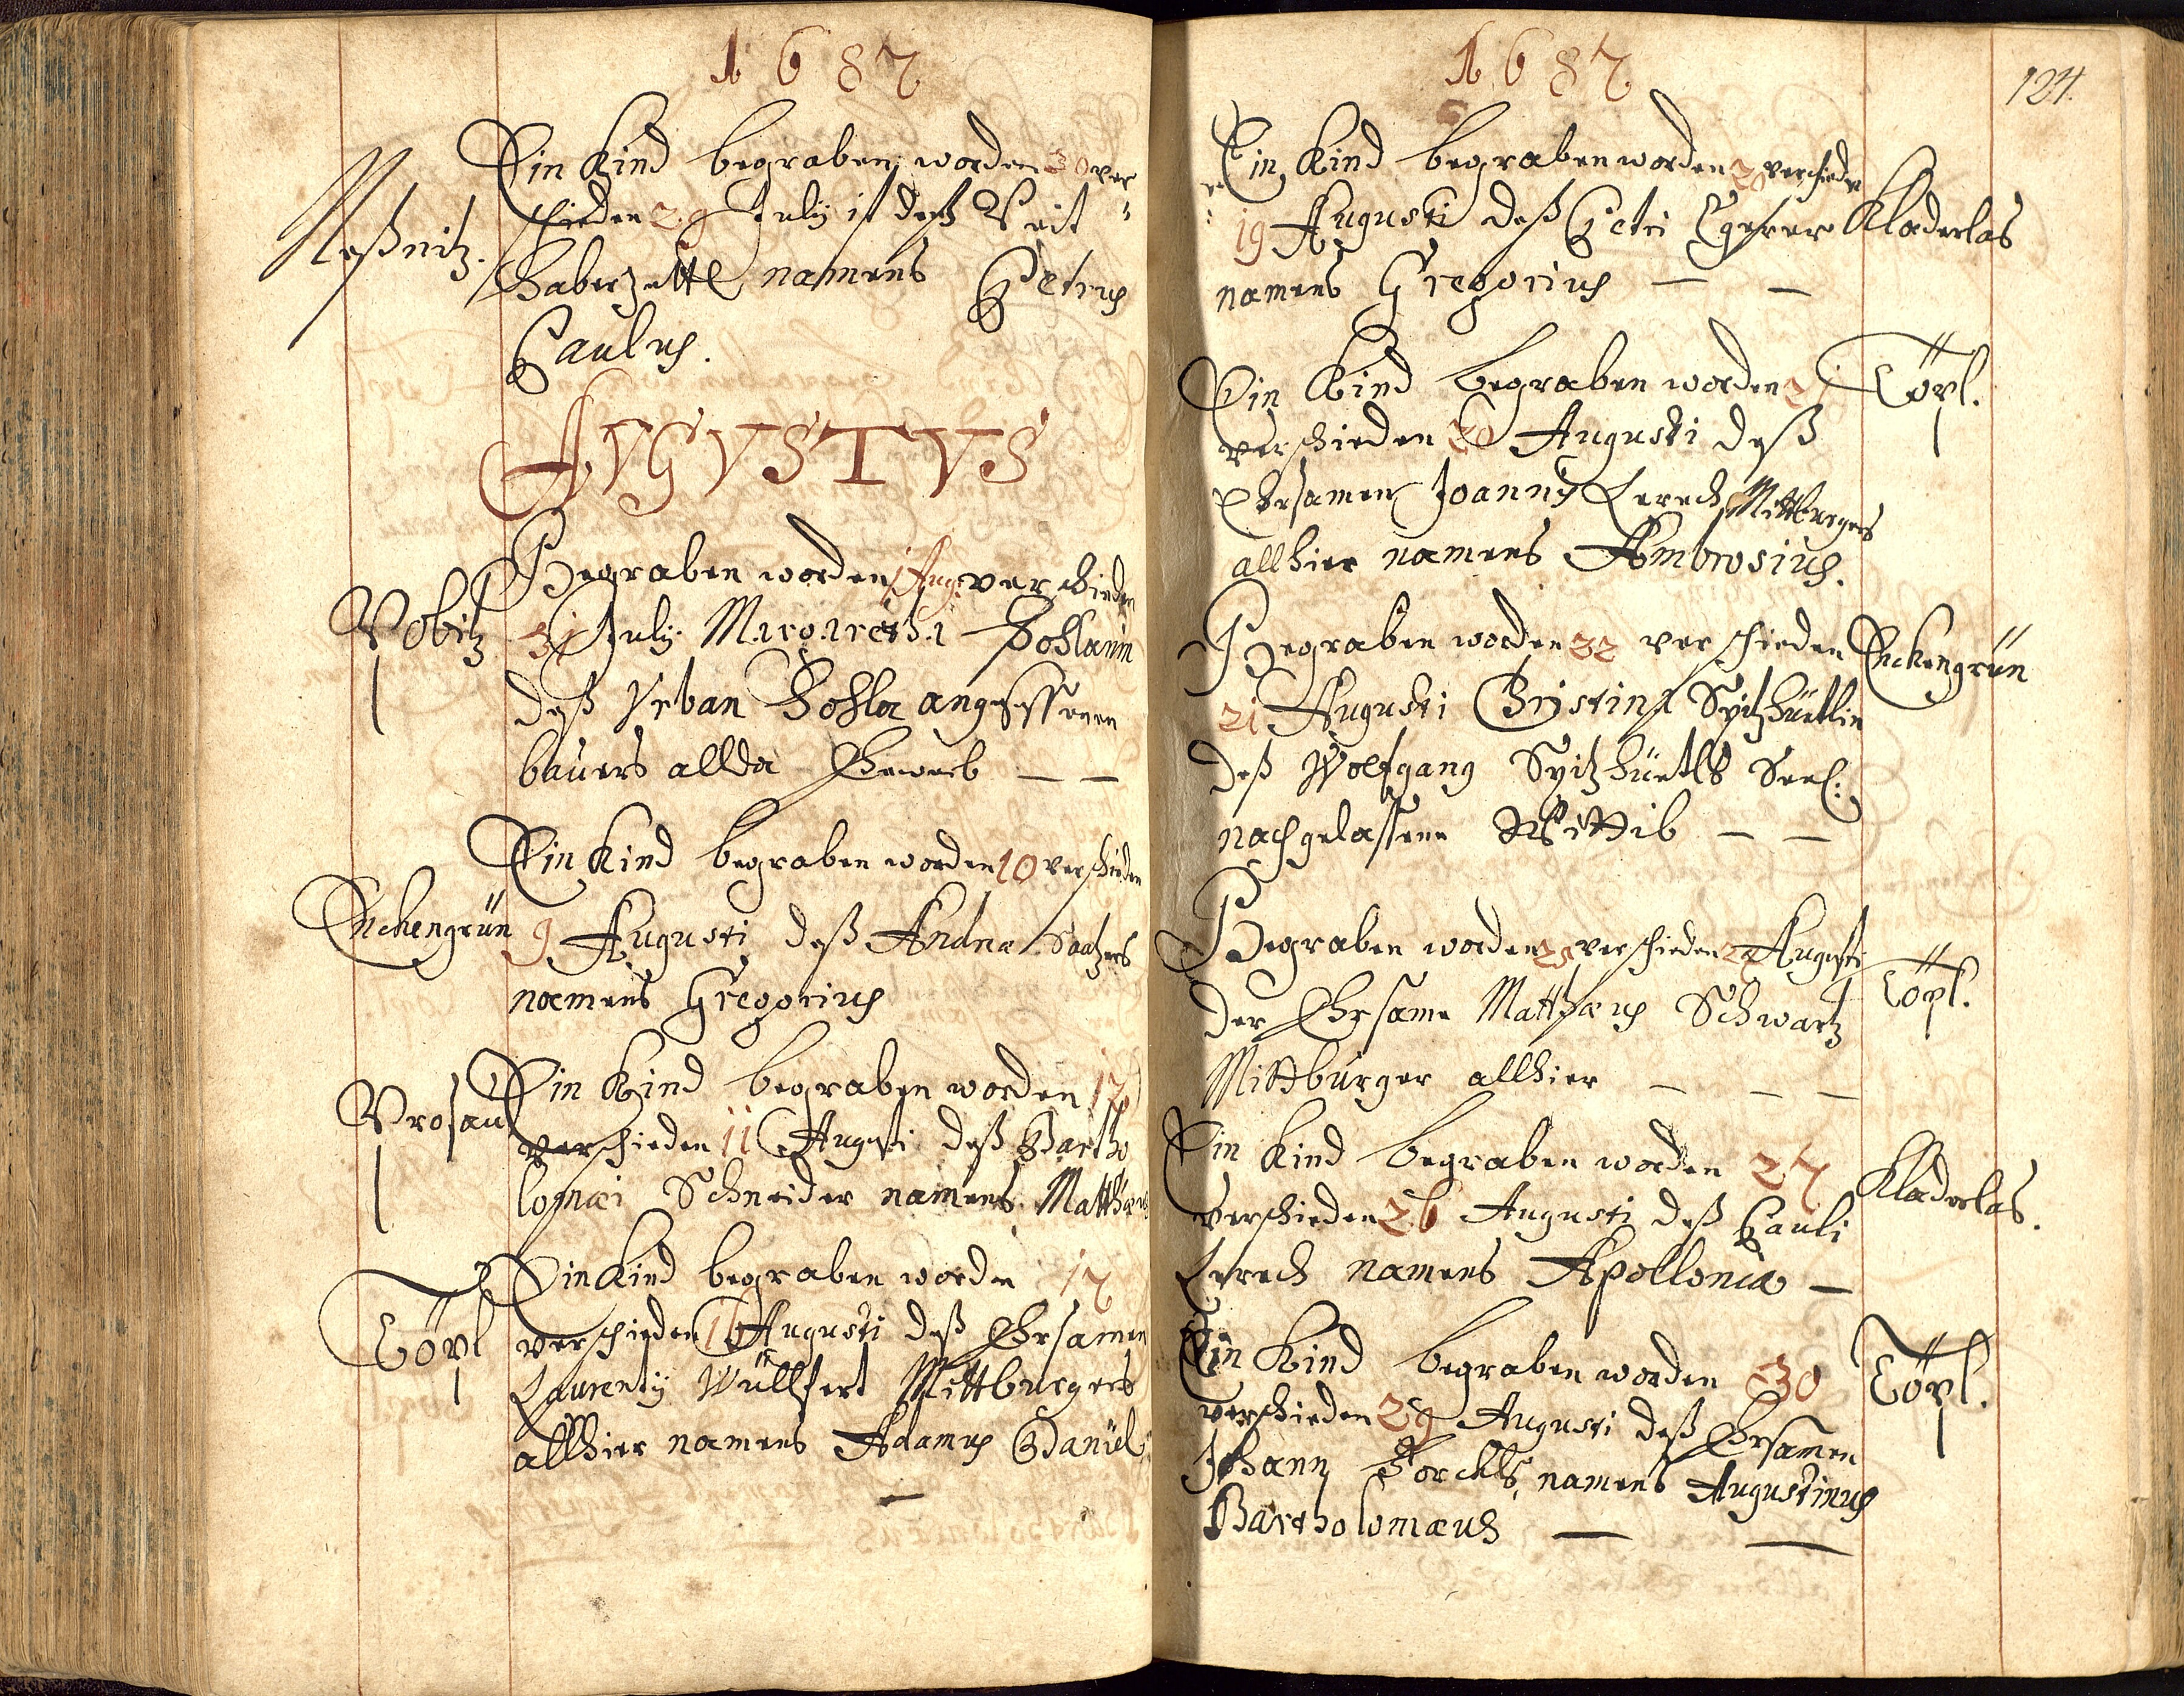 1687
Neßnitz.
Ein Kind begraben worden 30 ver
schieden 29 July ist deß Veit
Haberzettl namens Petrus
Paulus.
AVGVSTVS
Wobitz
Begraben worden 1 Aug: verschieden
31 July Margaretha Pohlanin
deß Urban Pohla angesessenen
bauers allda Eheweib — —
Enckengrün
Ein Kind begraben worden 10 verschieden
9 Augusti deß Andræ
namens Gregorius
Prosau
Ein Kind begraben worden 12
verschieden 11 Augusti deß Bartho
lomæi Schneider namens Matthæus
Töpl
Ein Kind begraben worden 17
verschieden 16 Augusti deß Ehrsamen
Laurenty Wüllfert Mittburgers
allhier namens Adamus Daniel
—
1687
124.
Ein Kind begraben worden 20 verschieden
19 Augusti deß Petri Egerer
Kladerlas
namens Gregorius — —
Ein Kind begraben worden 21
Töpl.
verschieden 20 Augusti deß
Ehrsamen Joannis Lerch Mittburgers
allhier namens Ambrosius.
Begraben worden 22 verschieden
Enckengrün
21 Augusti Christina Spitzhüetlin
deß Wolfgang Spitzhüetls Seel:
nachgelassene Wittib — —
Begraben worden 25 verschieden 24 Augusti
Töpl.
der Ehrsame Matthæus Schwartz
Mittburger allhier — — —
Ein Kind begraben worden 27
Kladerlas.
verschieden 26 Augusti deß Pauli
Lerch namens Apollonia —
Ein Kind begraben worden 30
Töpl.
verschieden 29 Augusti deß Ehrsamen
Johann namens Augustinus
Bartholomæus — —